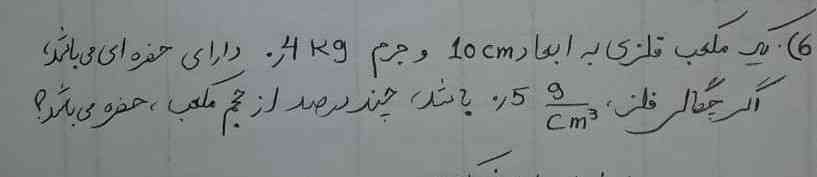 6). یک مکعب فلزی به ابعاد 10cm و جرم 0,4 kg دارای حفره ای می باشد،
اگر چگالی فلز، 0,5 g/cm³ باشد، چند درصد از حجم مکعب، حفره می باشد؟